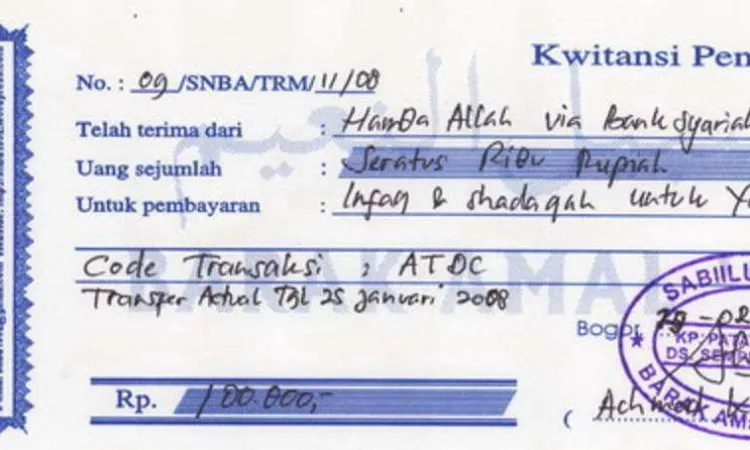 Kwitansi Pen
No. : 09 /SNBA/TRM/ 11/08
Telah terima dari : Hamba Allah via Bank Syariah
Uang sejumlah : Seratus Ribu Rupiah
Untuk pembayaran : Infaq & shadaqah untuk Ya
Code Transaksi : ATDC
Transfer Actual Tgl 25 Januari 2008
BARAK AMAL
Bogor,
SABIILL
KP. PATA
DS. SEM
BARAK AMA
Rp. 100.000,-
( Achmad